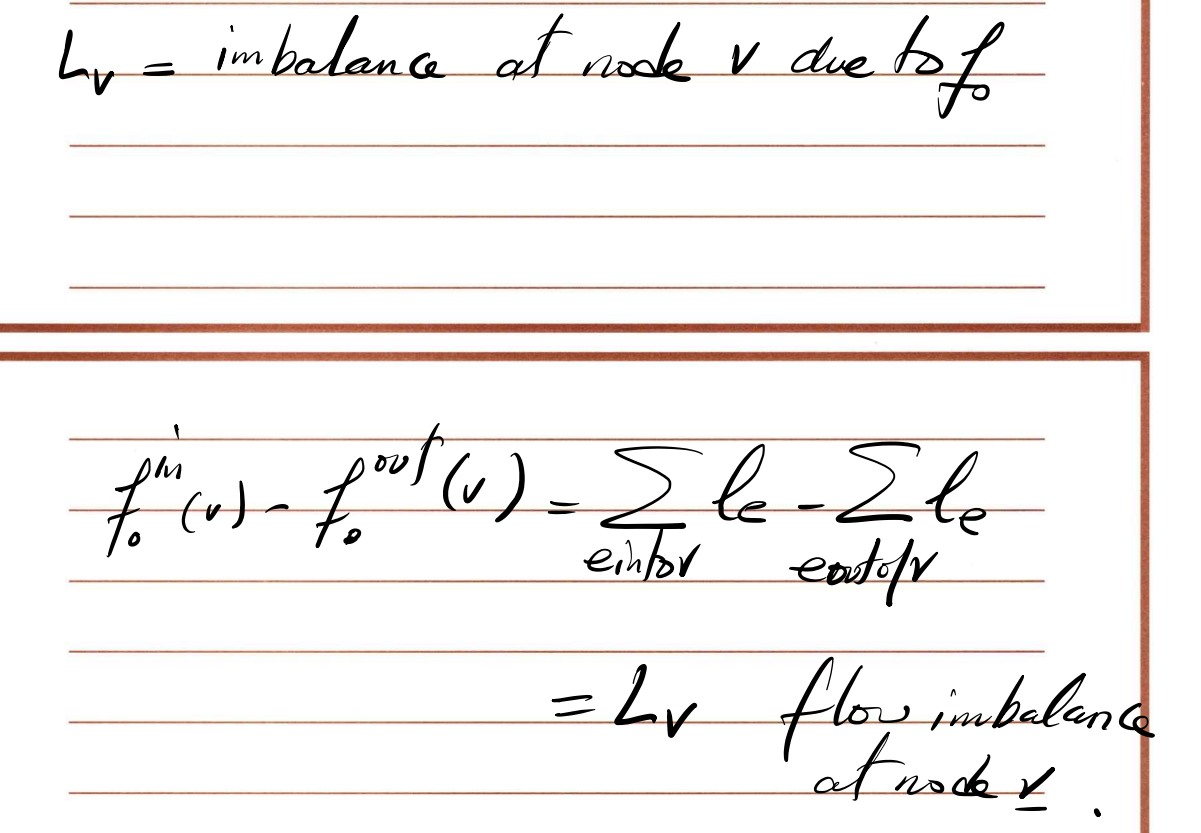 L_v = imbalance at node v due to f_0
f_0^in(v) - f_0^out(v) = Σ_{e into v} l_e - Σ_{e out of v} l_e
= L_v flow imbalance
at node v.